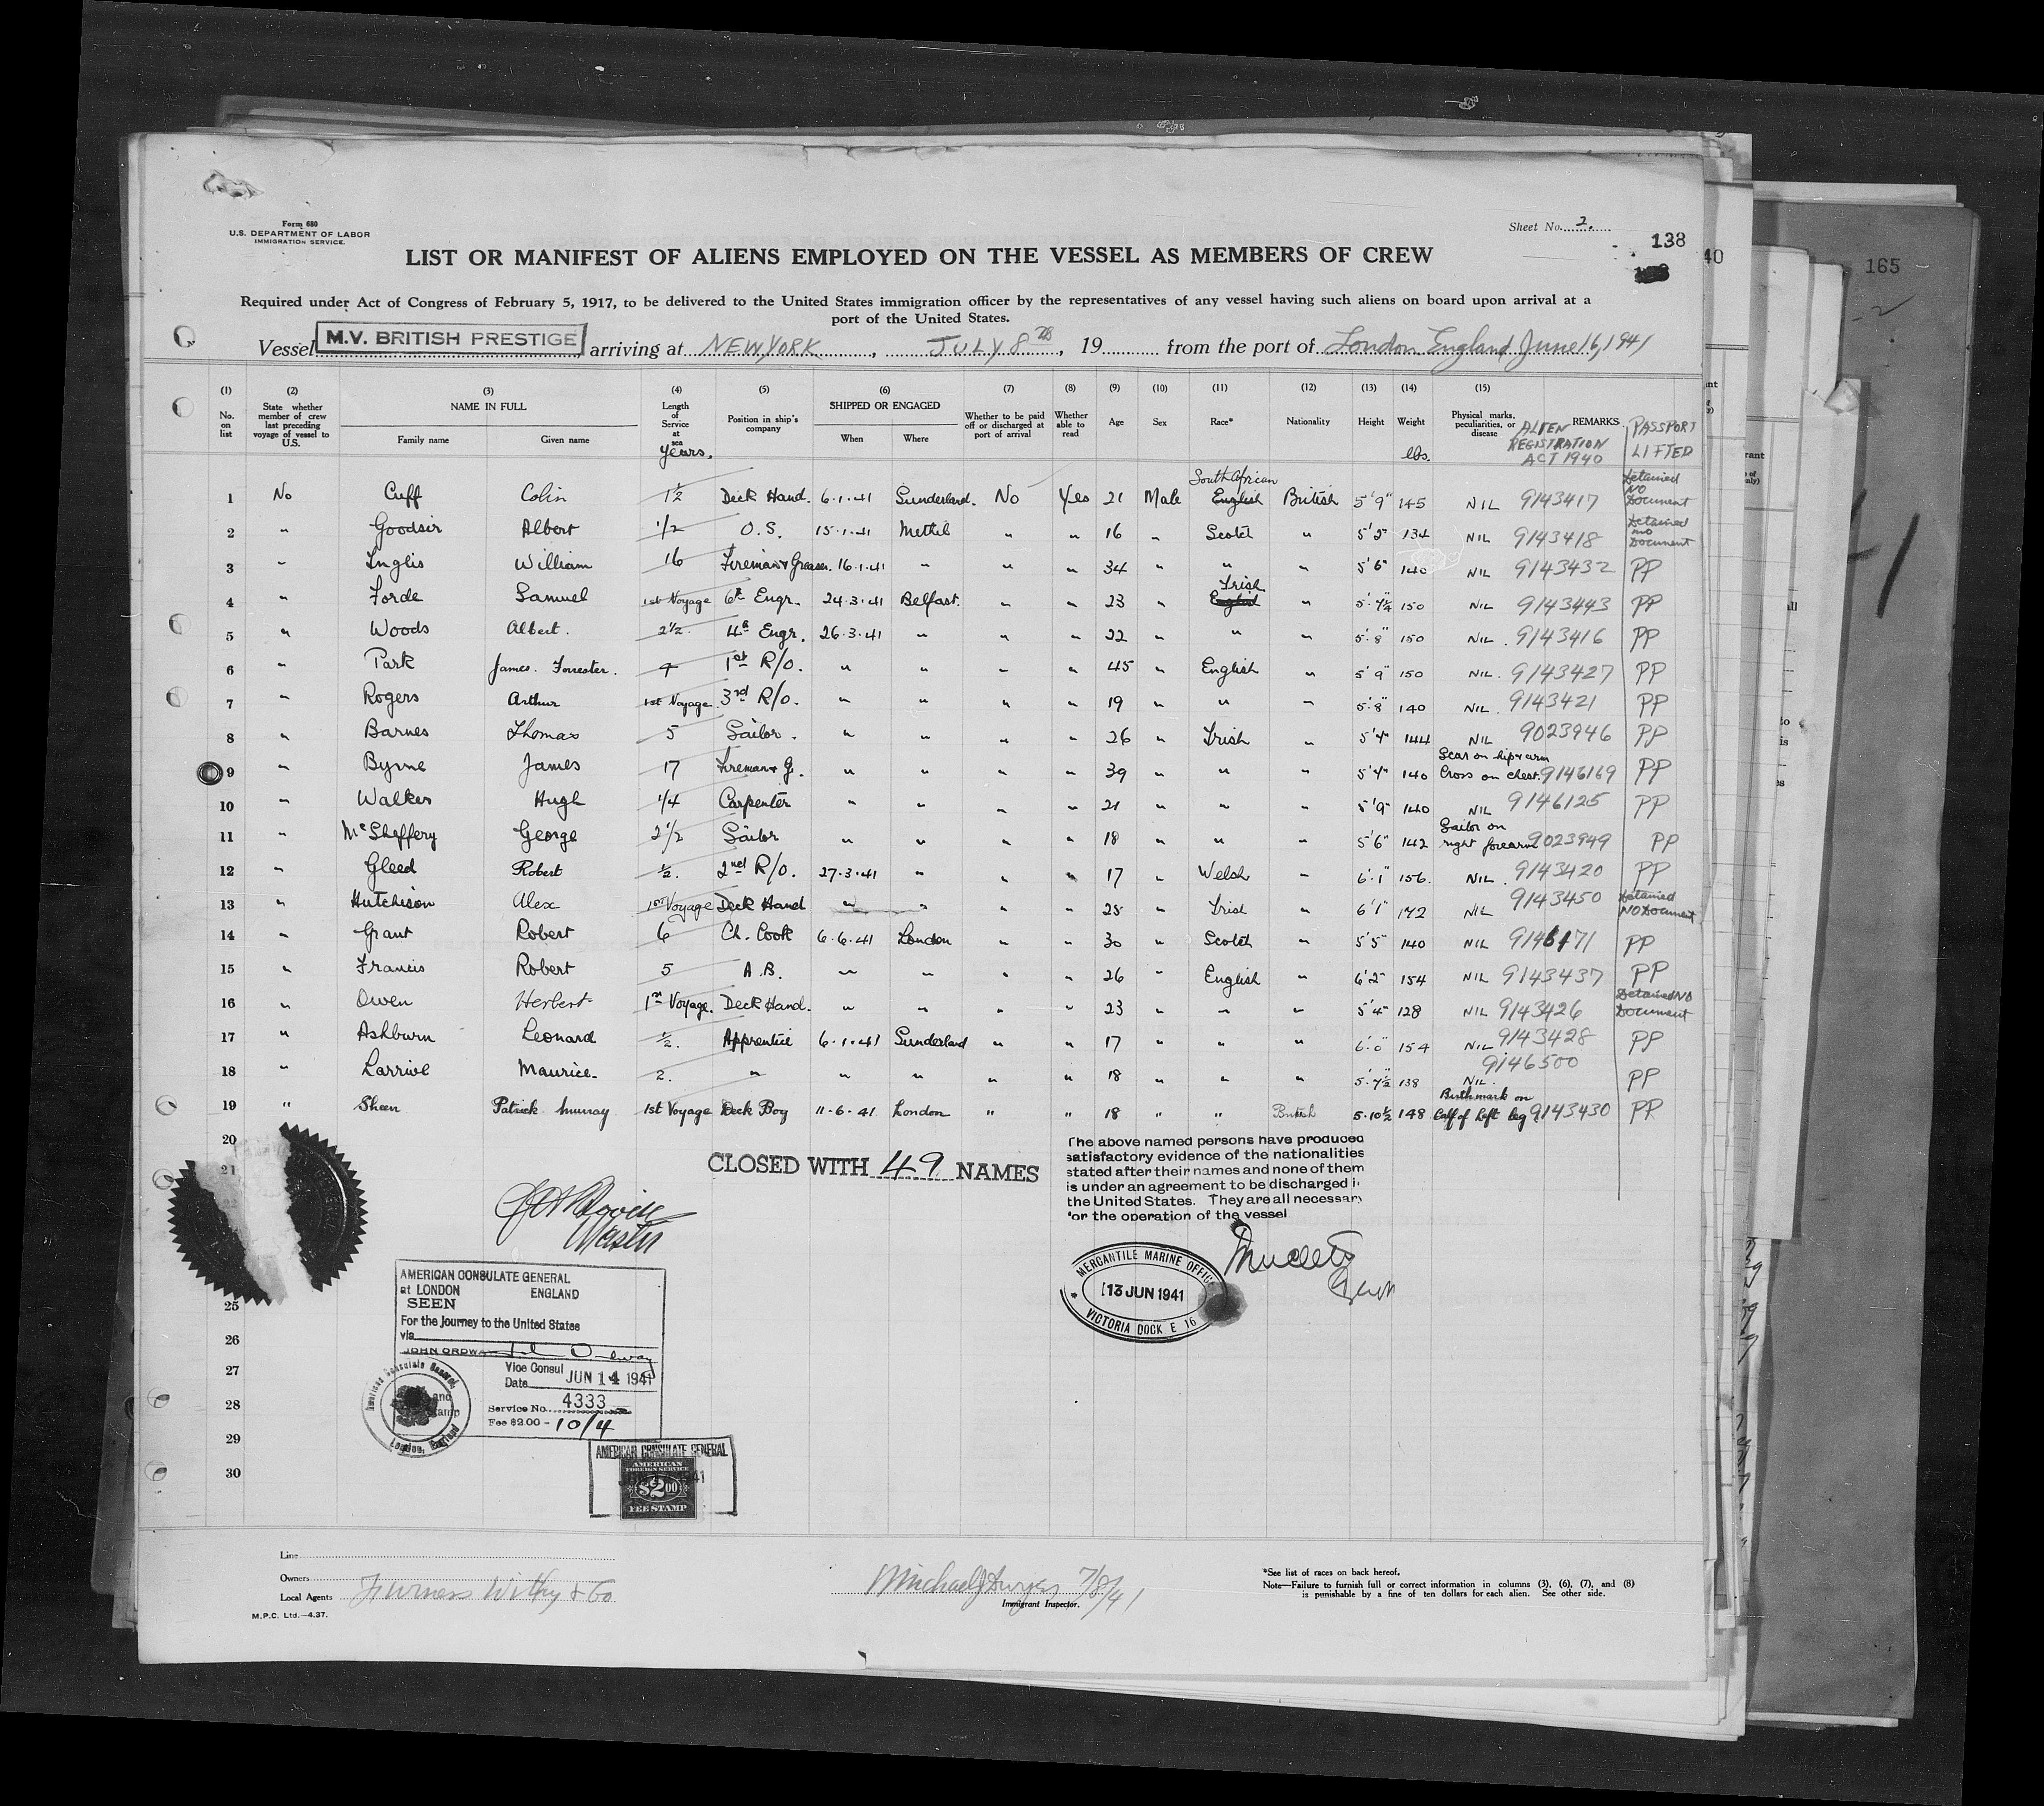 Form 680
U.S. DEPARTMENT OF LABOR
IMMIGRATION SERVICE.
Sheet No. 2.
138
40
165
LIST OR MANIFEST OF ALIENS EMPLOYED ON THE VESSEL AS MEMBERS OF CREW
Required under Act of Congress of February 5, 1917, to be delivered to the United States immigration officer by the representatives of any vessel having such aliens on board upon arrival at a
port of the United States.
Vessel M.V. BRITISH PRESTIGE arriving at NEW YORK, JULY 8th, 19 from the port of London England June 16, 1941
(1) (2) (3) (4) (5) (6) (7) (8) (9) (10) (11) (12) (13) (14) (15)
No. on list
State whether member of crew last preceding voyage of vessel to U.S.
NAME IN FULL
Family name Given name
Length of Service at sea years.
Position in ship's company
SHIPPED OR ENGAGED
When Where
Whether to be paid off or discharged at port of arrival
Whether able to read
Age Sex Race* Nationality Height Weight lbs.
Physical marks, peculiarities, or disease
REMARKS
ALIEN REGISTRATION ACT 1940
PASSPORT LIFTED
1 No Cuff Colin 1½ Deck Hand. 6.1.41 Sunderland. No Yes 21 Male South African English British 5'9" 145 NIL 9143417 Detained NO Document
2 " Goodsir Albert 1/2 O.S. 15.1.41 Methil " " 16 " Scotch " 5'5" 134 NIL 9143418 Detained no Document
3 " Inglis William 16 Fireman & Greaser. 16.1.41 " " " 34 " " " 5'6" 140 NIL 9143432 PP
4 " Forde Samuel 1st Voyage 6th Engr. 24.3.41 Belfast. " " 23 " Irish English " 5.7¼ 150 NIL 9143443 PP
5 " Woods Albert. 2½. 4th Engr. 26.3.41 " " " 22 " " " 5.8" 150 NIL. 9143416 PP
6 " Park James. Forrester. 7 1st R/O. " " " " 45 " English " 5'9" 150 NIL. 9143427 PP
7 " Rogers Arthur 1st Voyage 3rd R/O. " " " " 19 " " " 5.8" 140 NIL. 9143421 PP
8 " Barnes Thomas 5 Sailor. " " " " 26 " Irish " 5'4" 144 NIL 9023946 PP
9 " Byrne James 17 Fireman & G. " " " " 39 " " " 5'4" 140 Scar on hip & arm Cross on chest. 9146169 PP
10 " Walker Hugh 1/4 Carpenter " " " " 21 " " " 5'9" 140 NIL 9146125 PP
11 " McSheffery George 2 1/2 Sailor " " " " 18 " " " 5'6" 142 Sailor on right forearm 9023949 PP
12 " Gleed Robert ½. 2nd R/O. 27.3.41 " " " 17 " Welsh " 6'.1" 156. NIL. 9143420 PP
13 " Hutchison Alex 1st Voyage Deck Hand " " " " 25 " Irish " 6'1" 172 NIL 9143450 Detained NO Document
14 " Grant Robert 6 Ch. Cook 6.6.41 London " " 30 " Scotch " 5'5" 140 NIL 9146171 PP
15 " Francis Robert 5 A.B. " " " " 26 " English " 6'2" 154 NIL 9143437 PP
16 " Owen Herbert 1st Voyage. Deck Hand. " " " " 23 " " " 5'4" 128 NIL 9143426 Detained NO Document
17 " Ashburn Leonard ½. Apprentice 6.1.41 Sunderland " " 17 " " " 6.0" 154 NIL 9143428 PP
18 " Larrive Maurice. 2. " " " " " 18 " " " 5.7½ 138 NIL. 9146500 PP
19 " Sheen Patrick Murray 1st Voyage Deck Boy 11-6.41 London " " 18 " " British 5.10½ 148 Birthmark on Calf of Left leg 9143430 PP
20
21
25
26
27
28
29
30
CLOSED WITH 49 NAMES
Master
The above named persons have produced
satisfactory evidence of the nationalities
stated after their names and none of them
is under an agreement to be discharged i
the United States. They are all necessary
for the operation of the vessel
MERCANTILE MARINE OFFICE
13 JUN 1941
VICTORIA DOCK E 16
AMERICAN CONSULATE GENERAL
at LONDON ENGLAND
SEEN
For the Journey to the United States
via
JOHN ORDWAY
Vice Consul
Date JUN 14 1941
Service No. 4333
Fee $2.00 - 10/4
American Consulate General,
London, England
AMERICAN CONSULATE GENERAL
AMERICAN
FOREIGN SERVICE
$2.00
FEE STAMP
Line
Owners
Local Agents Furness Withy & Co
M.P.C. Ltd.—4.37.
Michael J Dwyer 7/8/41
Immigrant Inspector.
*See list of races on back hereof.
Note—Failure to furnish full or correct information in columns (3), (6), (7), and (8)
is punishable by a fine of ten dollars for each alien. See other side.